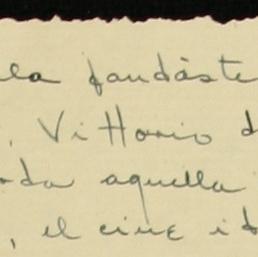 la fandáste
. Vittorio d
da aquella
, el cine it